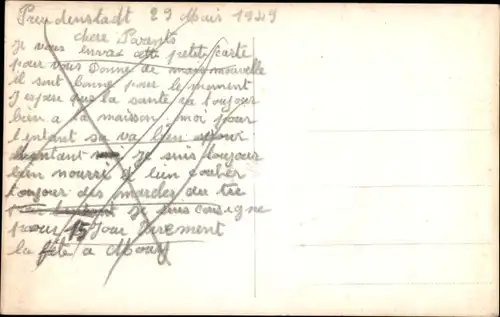 Freudenstadt 29 Mais 1949
chere Parents
Je vous envai cette petite carte
pour vous Donné de mais nouvelle
il sont bonne pour le moment
J espere que la santé va toujour
bien a la maison, moi pour
l'entant sa va bien
Je suis toujour
bien nourri et bien coucher
toujour des marches
Je suis consigne
pour 15 Jour
la fête a